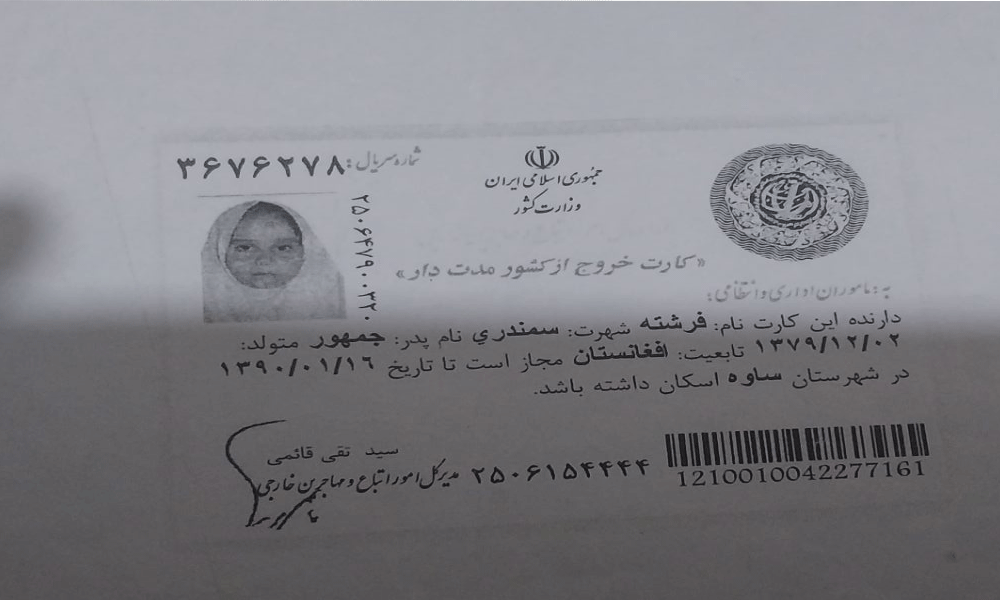 شماره سریال: ۳۶۷۶۲۷۸
جمهوری اسلامی ایران
وزارت کشور
۲۵۰۶۴۷۹۰۰۳۲۰
«کارت خروج از کشور مدت دار»
به: ماموران اداری و انتظامی؛
دارنده این کارت نام: فرشته شهرت: سمندري نام پدر: جمهور متولد:
۱۳۷۹/۱۲/۰۲ تابعیت: افغانستان مجاز است تا تاریخ ۱۳۹۰/۰۱/۱۶
در شهرستان ساوه اسکان داشته باشد.
سید تقی قائمی
مدیرکل امور اتباع و مهاجرین خارجی
۲۵۰۶۱۵۴۴۴۴
1210010042277161